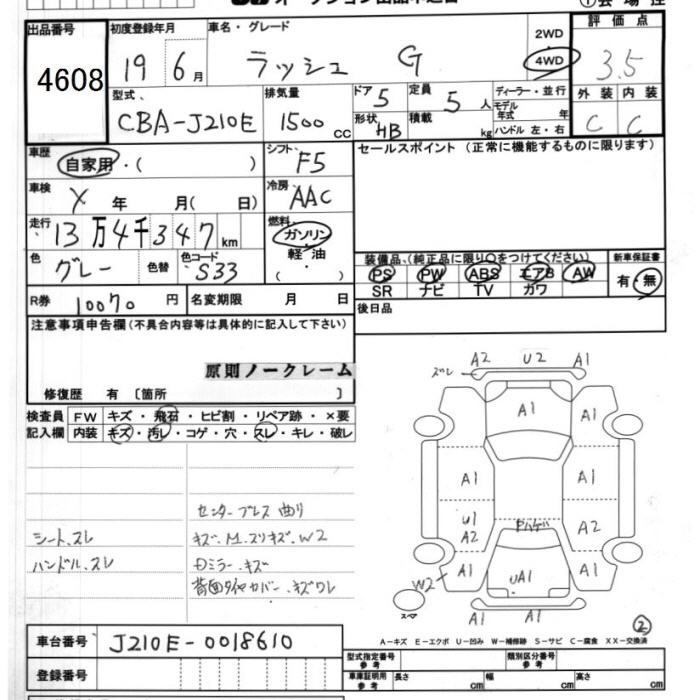 出品番号
4608
初度登録年月
19 6月
車名・グレード
ラッシュ G
2WD
4WD
評価点
3.5
型式
CBA-J210E
排気量
1500cc
ドア 5
形状 HB
定員 5人
積載 kg
ディーラー・並行
モデル年式 年
ハンドル 左・右
外装 内装
C C
車歴
自家用・( )
シフト F5
セールスポイント (正常に機能するものに限ります)
車検 X 年 月( 日)
冷房 AAC
走行 13万4千347km
燃料
ガソリン
・軽油
( ・ )
色 グレー 色替 色コード S33
装備品、(純正品に限り○をつけてください) 新車保証書
PS PW ABS エアB AW 有・無
SR ナビ TV カワ
R券 10070円 名変期限 月 日
後日品
注意事項申告欄(不具合内容等は具体的に記入して下さい)
原則ノークレーム
修復歴 有 〔箇所 〕
検査員 FW キズ・飛石・ヒビ割・リペア跡・×要
記入欄 内装 キズ・汚レ・コゲ・穴・スレ・キレ・破レ
センターブレス 曲り
シート、スレ キズ、M.スリキズ、W2
ハンドル、スレ Dミラー、キズ
背面タイヤカバー、キズワレ
ズレ A2 U2 A1
A1
A1 A1
U1 A2 Pハゲ A2
W2 A1 UA1 A1
スペア
A1 A1
2
A-キズ E-エクボ U-凹み W-補修跡 S-サビ C-腐食 XX-交換済
車台番号 J210E-0018610
登録番号
型式指定番号 参考 類別区分番号 参考
車庫証明用 参考 長さ cm 幅 cm 高さ cm